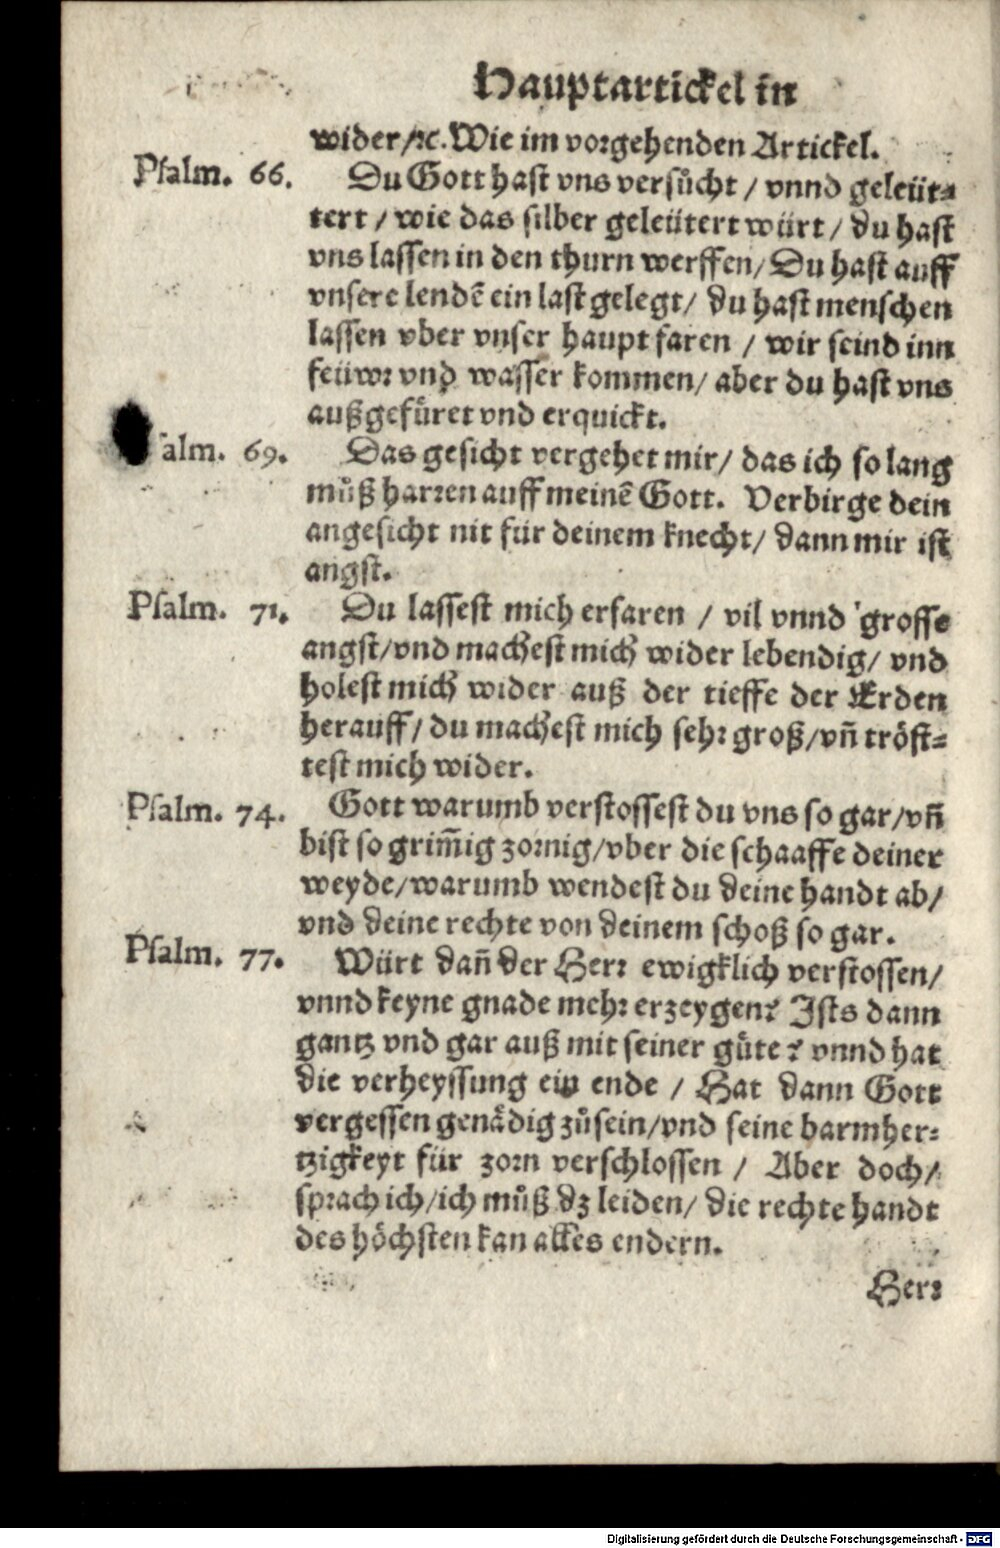 Hauptartickel in
wider/ꝛc. Wie im vorgehenden Artickel.
Psalm. 66. Du Gott hast vns versůcht / vnnd geleüt-
tert / wie das silber geleütert würt / du hast
vns lassen in den thurn werffen/ Du hast auff
vnsere lendē ein last gelegt/ du hast menschen
lassen vber vnser haupt faren / wir seind inn
feüwr vnd wasser kommen/ aber du hast vns
außgefüret vnd erquickt.
alm. 69. Das gesicht vergehet mir/ das ich so lang
můß harren auff meinē Gott. Verbirge dein
angesicht nit für deinem knecht/ dann mir ist
angst.
Psalm. 71. Du lassest mich erfaren / vil vnnd grosse
angst/vnd machest mich wider lebendig/ vnd
holest mich wider auß der tieffe der Erden
herauff/ du machest mich sehr groß/vñ tröst-
test mich wider.
Psalm. 74. Gott warumb verstossest du vns so gar/vñ
bist so grim̄ig zornig/vber die schaaffe deiner
weyde/warumb wendest du deine handt ab/
vnd deine rechte von deinem schoß so gar.
Psalm. 77. Würt dañ der Herr ewigklich verstossen/
vnnd keyne gnade mehr erzeygen? Ists dann
gantz vnd gar auß mit seiner güte? vnnd hat
die verheyssung ein ende / Hat dann Gott
vergessen genädig zůsein/vnd seine barmher-
tzigkeyt für zorn verschlossen / Aber doch/
sprach ich/ich můß dz leiden/ die rechte handt
des höchsten kan alles endern.
Herr
Digitalisierung gefördert durch die Deutsche Forschungsgemeinschaft - DFG